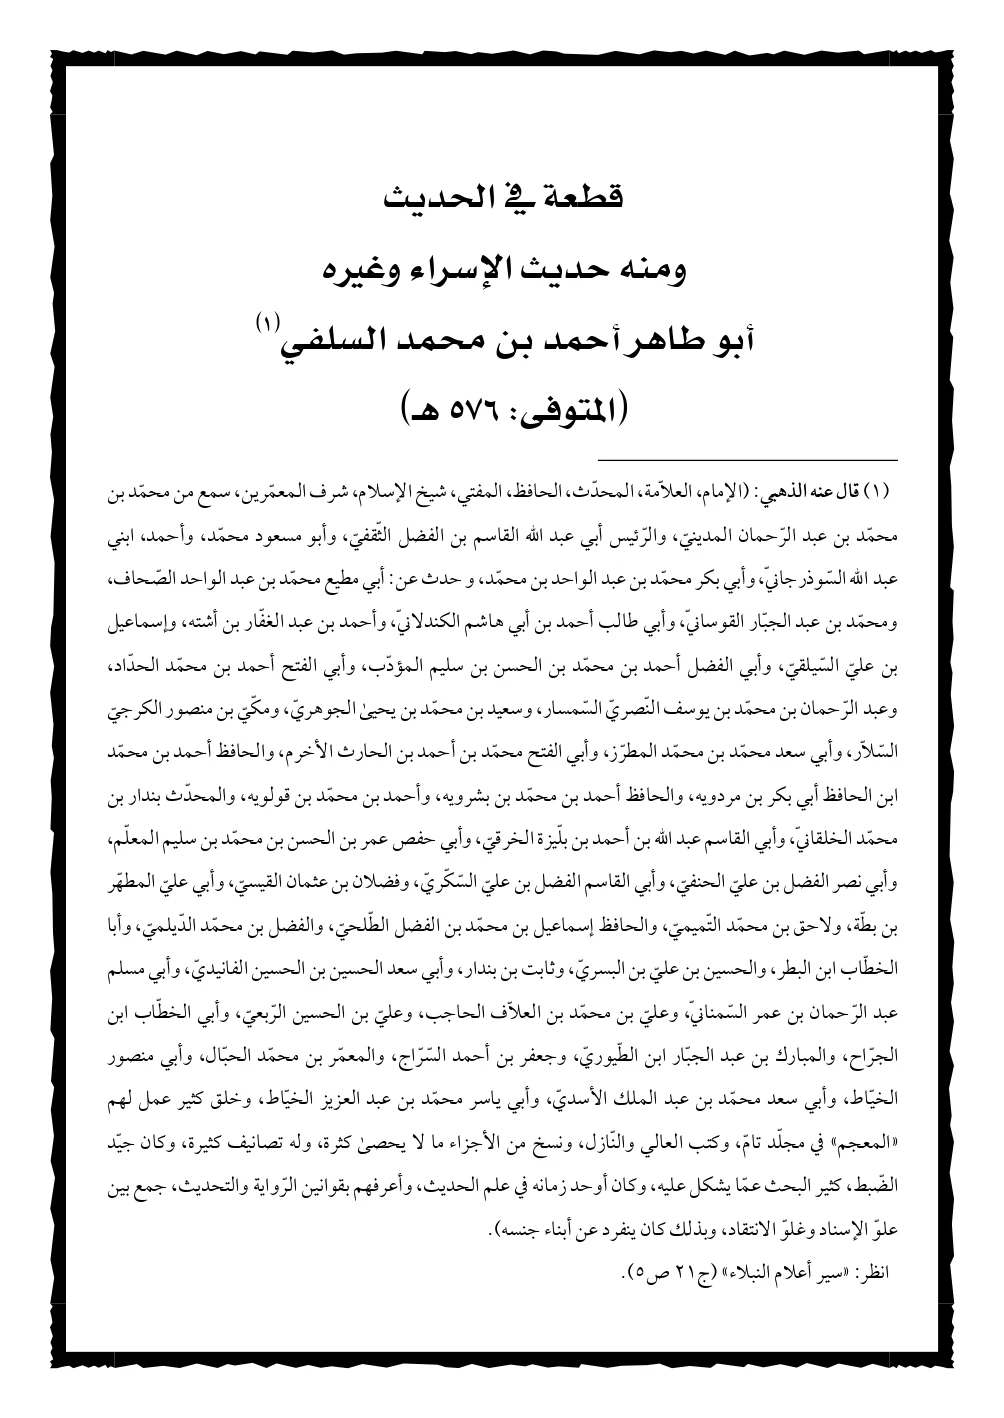 قطعة في الحديث
ومنه حديث الإسراء وغيره
أبو طاهر أحمد بن محمد السلفي(١)
(المتوفى: ٥٧٦ هـ)
(١) قال عنه الذهبي: (الإمام، العلاّمة، المحدّث، الحافظ، المفتي، شيخ الإسلام، شرف المعمّرين، سمع من محمّد بن
محمّد بن عبد الرّحمان المدينيّ، والرّئيس أبي عبد الله القاسم بن الفضل الثّقفيّ، وأبو مسعود محمّد، وأحمد، ابني
عبد الله السّوذرجانيّ، وأبي بكر محمّد بن عبد الواحد بن محمّد، وحدث عن: أبي مطيع محمّد بن عبد الواحد الصّحاف،
ومحمّد بن عبد الجبّار القوسانيّ، وأبي طالب أحمد بن أبي هاشم الكندلانيّ، وأحمد بن عبد الغفّار بن أشته، وإسماعيل
بن عليّ السّيلقيّ، وأبي الفضل أحمد بن محمّد بن الحسن بن سليم المؤدّب، وأبي الفتح أحمد بن محمّد الحدّاد،
وعبد الرّحمان بن محمّد بن يوسف النّصريّ السّمسار، وسعيد بن محمّد بن يحيىٰ الجوهريّ، ومكّيّ بن منصور الكرجيّ
السّلاّر، وأبي سعد محمّد بن محمّد المطرّز، وأبي الفتح محمّد بن أحمد بن الحارث الأخرم، والحافظ أحمد بن محمّد
ابن الحافظ أبي بكر بن مردويه، والحافظ أحمد بن محمّد بن بشرويه، وأحمد بن محمّد بن قولويه، والمحدّث بندار بن
محمّد الخلقانيّ، وأبي القاسم عبد الله بن أحمد بن بلّيزة الخرقيّ، وأبي حفص عمر بن الحسن بن محمّد بن سليم المعلّم،
وأبي نصر الفضل بن عليّ الحنفيّ، وأبي القاسم الفضل بن عليّ السّكّريّ، وفضلان بن عثمان القيسيّ، وأبي عليّ المطهّر
بن بطّة، ولاحق بن محمّد التّميميّ، والحافظ إسماعيل بن محمّد بن الفضل الطّلحيّ، والفضل بن محمّد الدّيلميّ، وأبا
الخطّاب ابن البطر، والحسين بن عليّ بن البسريّ، وثابت بن بندار، وأبي سعد الحسين بن الحسين الفانيديّ، وأبي مسلم
عبد الرّحمان بن عمر السّمنانيّ، وعليّ بن محمّد بن العلاّف الحاجب، وعليّ بن الحسين الرّبعيّ، وأبي الخطّاب ابن
الجرّاح، والمبارك بن عبد الجبّار ابن الطّيوريّ، وجعفر بن أحمد السّرّاج، والمعمّر بن محمّد الحبّال، وأبي منصور
الخيّاط، وأبي سعد محمّد بن عبد الملك الأسديّ، وأبي ياسر محمّد بن عبد العزيز الخيّاط، وخلق كثير عمل لهم
«المعجم» في مجلّد تامّ، وكتب العالي والنّازل، ونسخ من الأجزاء ما لا يحصىٰ كثرة، وله تصانيف كثيرة، وكان جيّد
الضّبط، كثير البحث عمّا يشكل عليه، وكان أوحد زمانه في علم الحديث، وأعرفهم بقوانين الرّواية والتحديث، جمع بين
علوّ الإسناد وغلوّ الانتقاد، وبذلك كان ينفرد عن أبناء جنسه).
انظر: «سير أعلام النبلاء» (ج٢١ ص٥).